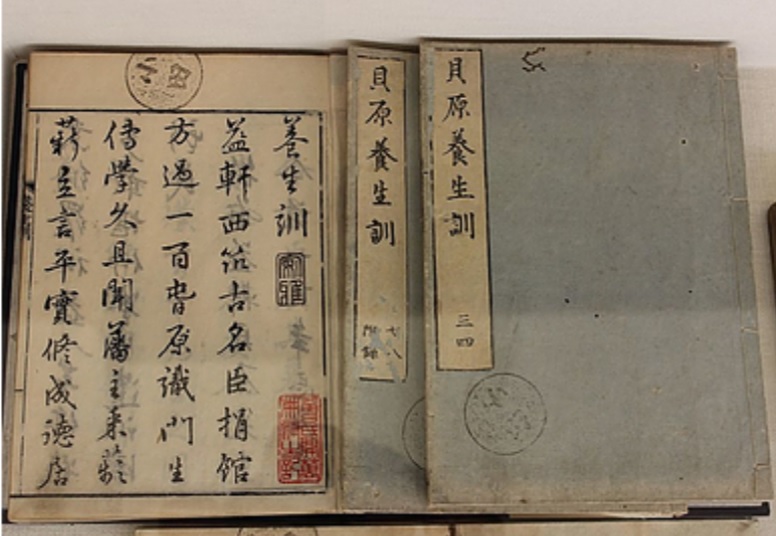 養生訓
益軒西筑古名臣捐館
方過一百眥原識門生
傳學久且聞藩主釆
薪立言平實修成德居
貝原養生訓
七八
附録
貝原養生訓
三四